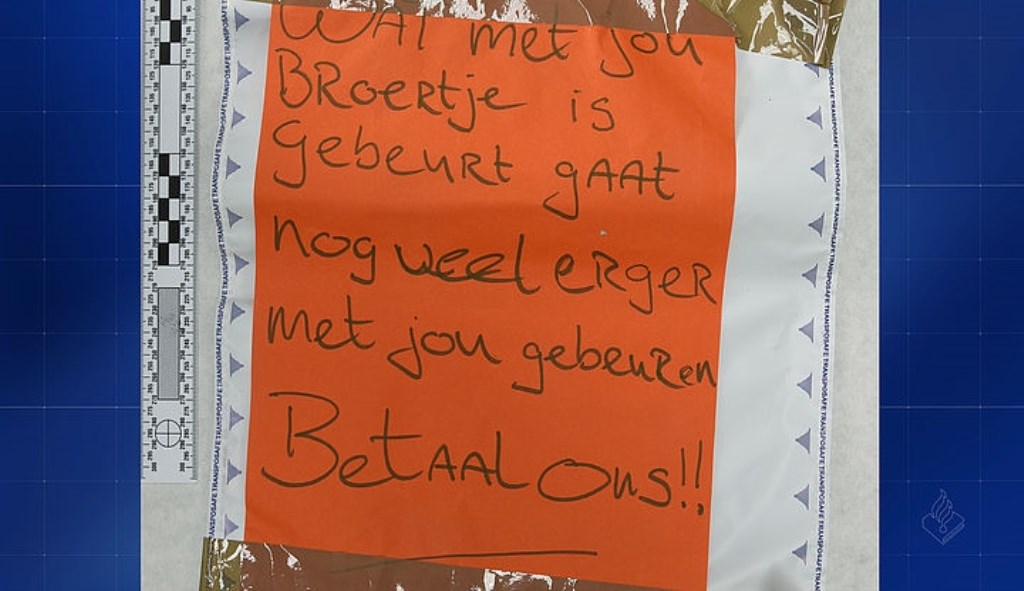 WAT met jou
BRoertje is
gebeurt gAAt
nog veel eRgeR
met jou gebeuRen
BetAAL Ons!!
TRANSPOSAFE TRANSPOSAFE TRANSPOSAFE